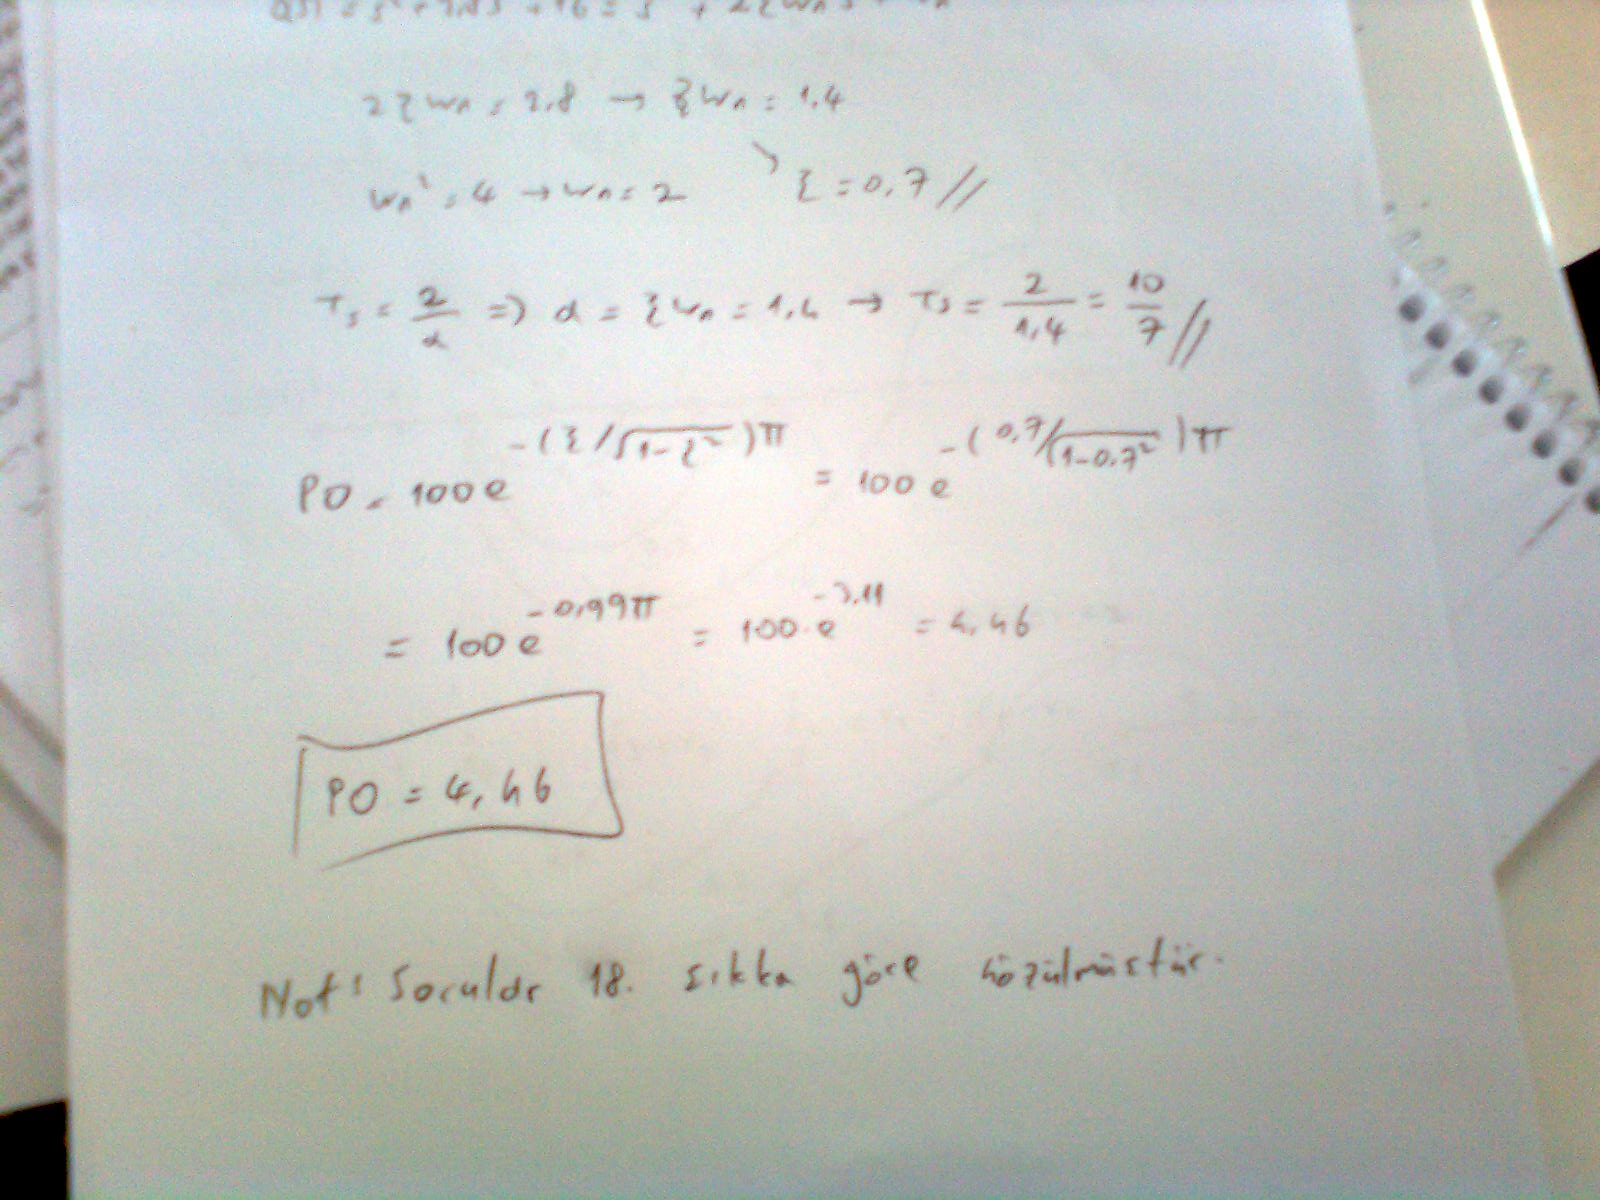 2ξwn = 2,8 → ξwn = 1.4
wn² = 4 → wn = 2 ξ = 0.7 //
Ts = 2/α ⇒ α = ξwn = 1.4 → Ts = 2/1.4 = 10/7 //
PO = 100 e^-(ξ/√1-ξ²)π = 100 e^-(0.7/√1-0.7²)π
= 100 e^-0,99π = 100.e^-3.11 = 4,46
PO = 4,46
Not: Sorular 18. şıkka göre çözülmüştür.